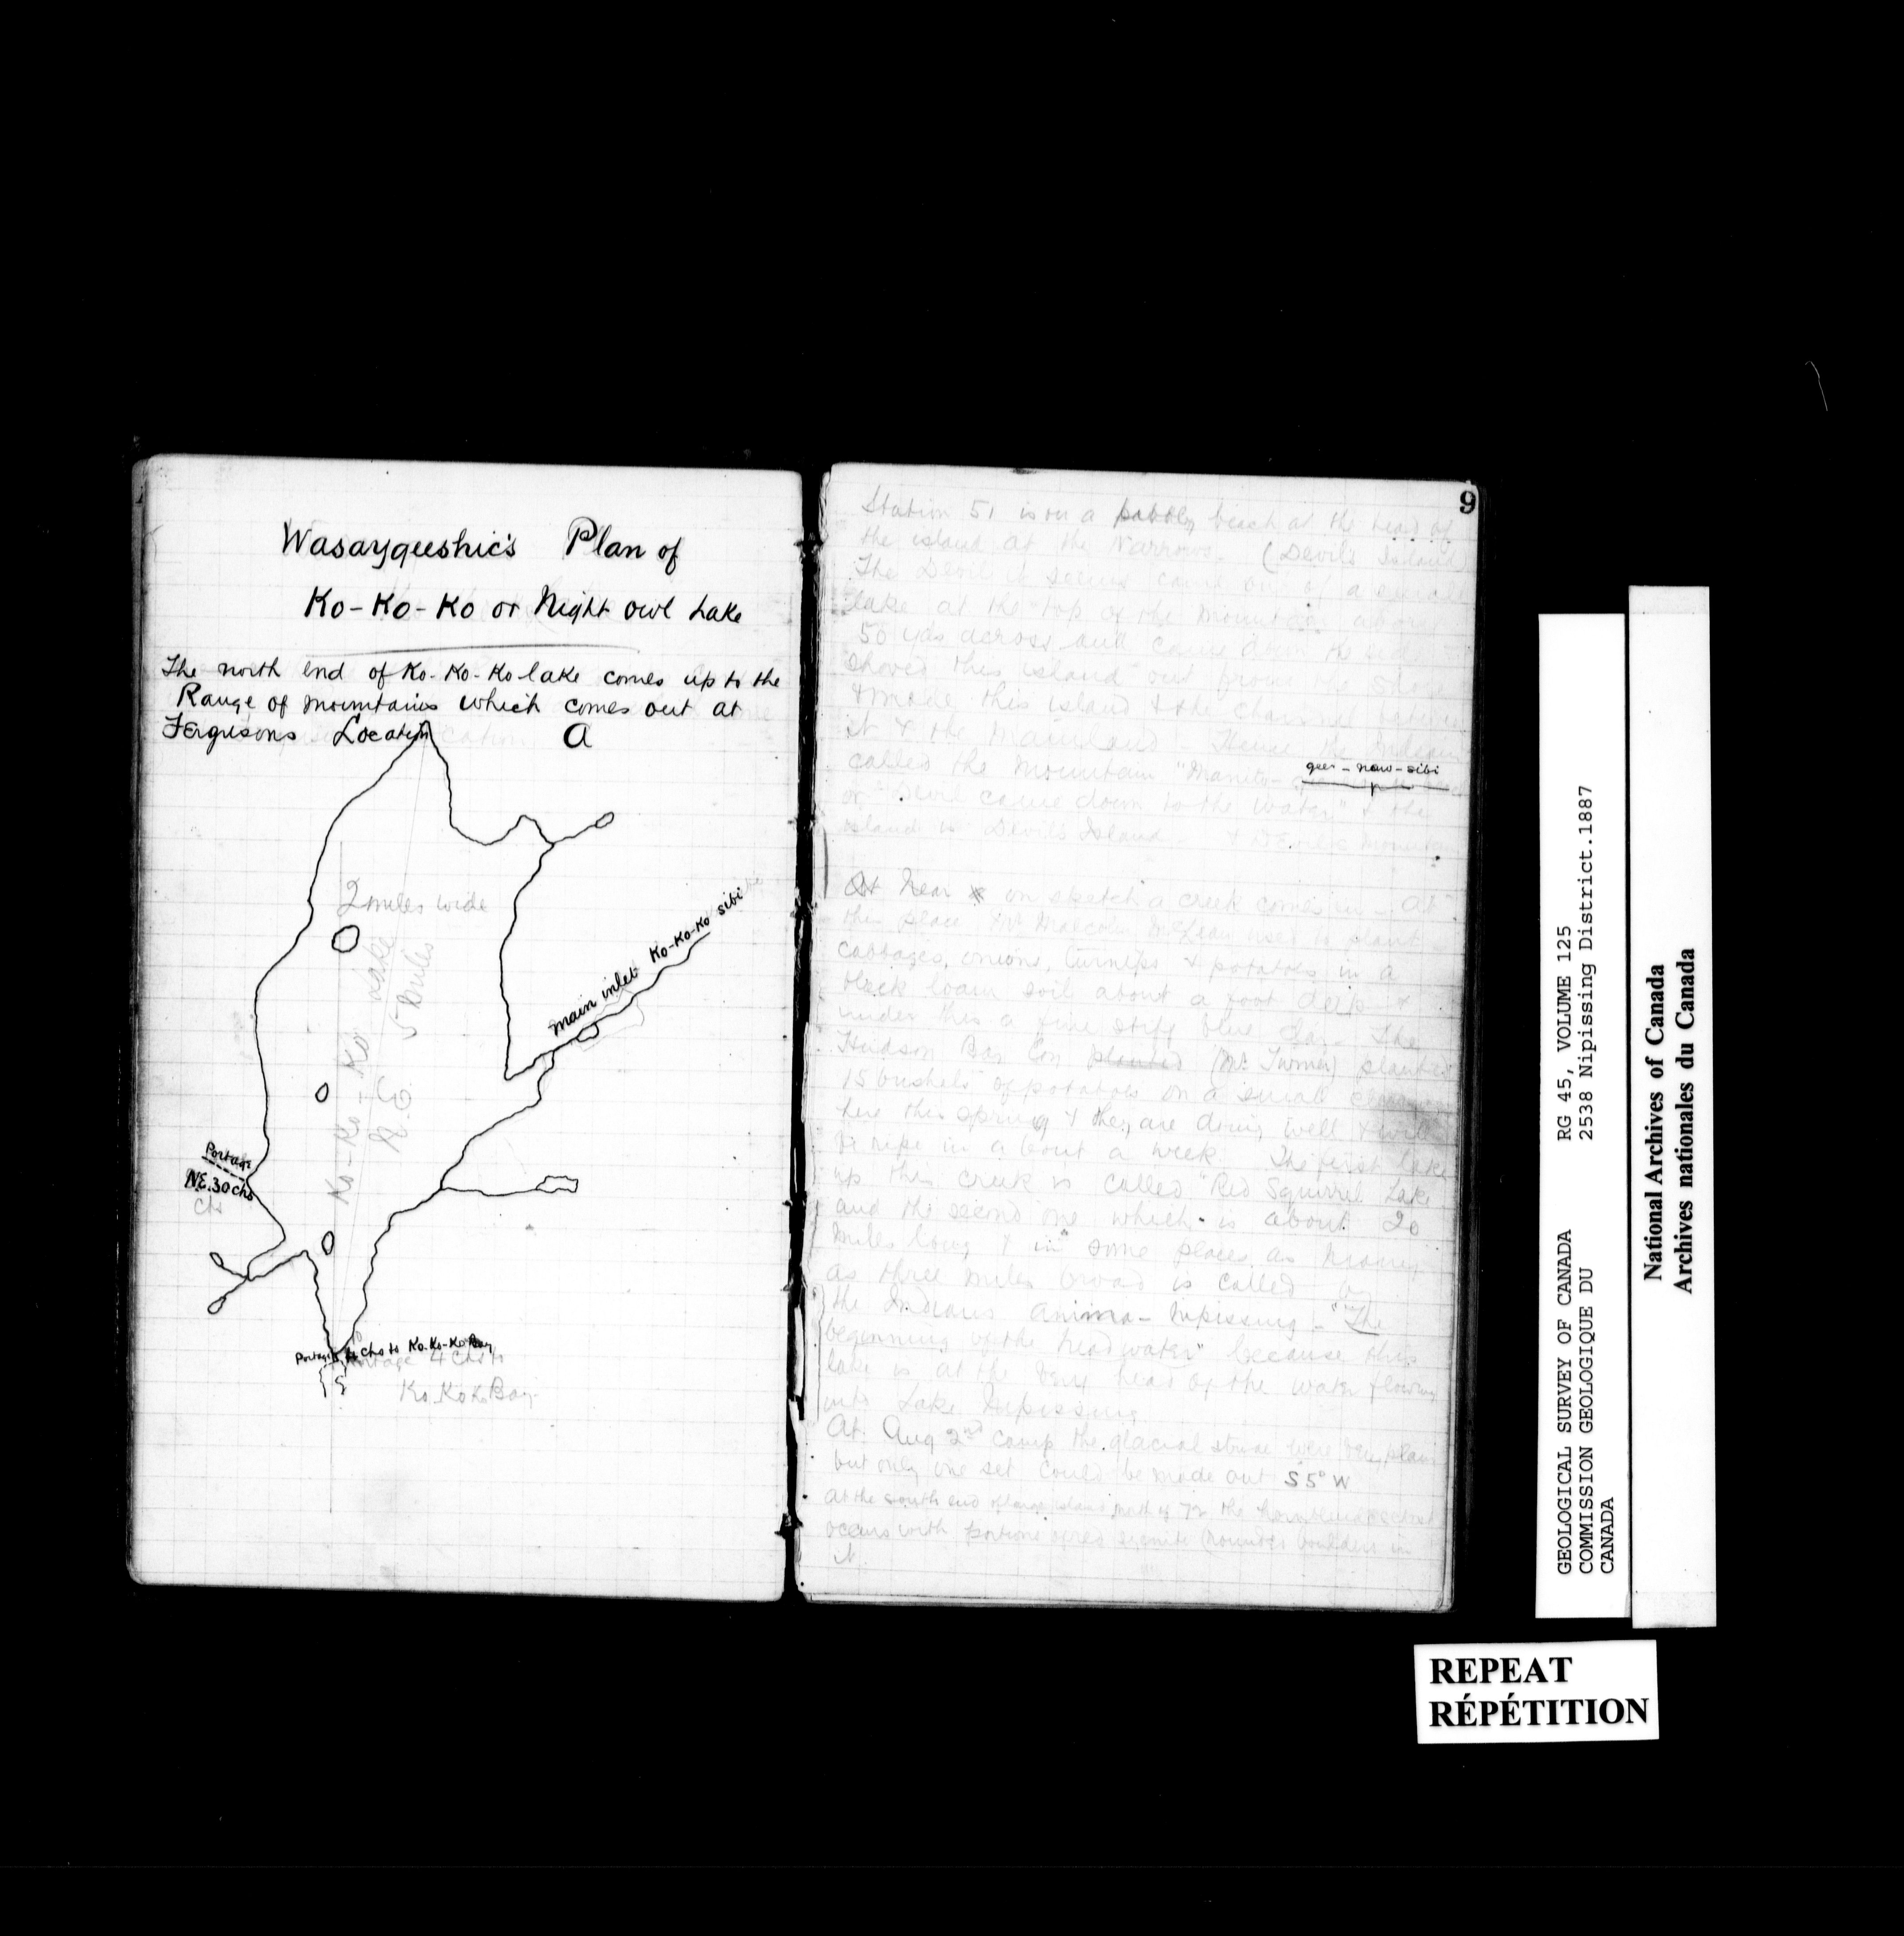 Wasaygueshic's Plan of
Ko-Ko-Ko or Night Owl Lake
The north end of Ko-Ko-Ko lake comes up to the
Range of mountains which comes out at
Fergusons Location
a
2 miles wide
Ko-Ko-Ko Lake
5 miles
N.E.
main inlet Ko-Ko-Ko sibi
Portage
N.E. 30 chs
chs
Portage 4 chs to Ko-Ko-Ko Bay
Portage 4 chs to
Ko-Ko-Ko Bay
9
Station 51 is on a pebbly beach at the head of
the island at the Narrows. (Devils Island)
The Devil it seems came out of a small
lake at the top of the mountain about
50 yds across and came down the side
shoved this island out from the shore
& made this island & the channel between
it & the mainland - Hence the Indians
called the mountain "Manito-
gee-naw-sibi
or "Devil came down to the water" & the
island is Devil's Island - & Devils Mountain
At near on sketch a creek comes in - At
this place Mr Malcolm McLean used to plant
cabbages, onions, turnips & potatoes in a
black loam soil about a foot deep &
under this a fine stiff blue clay - The
Hudson Bay Con planted (Mr Turner) planted
15 bushels of potatoes on a small clearing
here this spring & they are doing well & will
be ripe in about a week. The first lake
up this creek is called "Red Squirrel Lake
and the second one which is about 20
miles long & in some places as many
as three miles broad is called by
the Indians Anima-Nipissing - "The
beginning of the head water" because this
lake is at the very head of the water flowing
into Lake Nipissing
At Aug 2nd camp the glacial striae were very plain
but only one set could be made out S5°W
At the south end of large island north of 72 the hornblende schist
occurs with portions of red syenite (rounded boulders in
it.
GEOLOGICAL SURVEY OF CANADA RG 45, VOLUME 125
COMMISSION GEOLOGIQUE DU 2538 Nipissing District.1887
CANADA
National Archives of Canada
Archives nationales du Canada
REPEAT
RÉPÉTITION